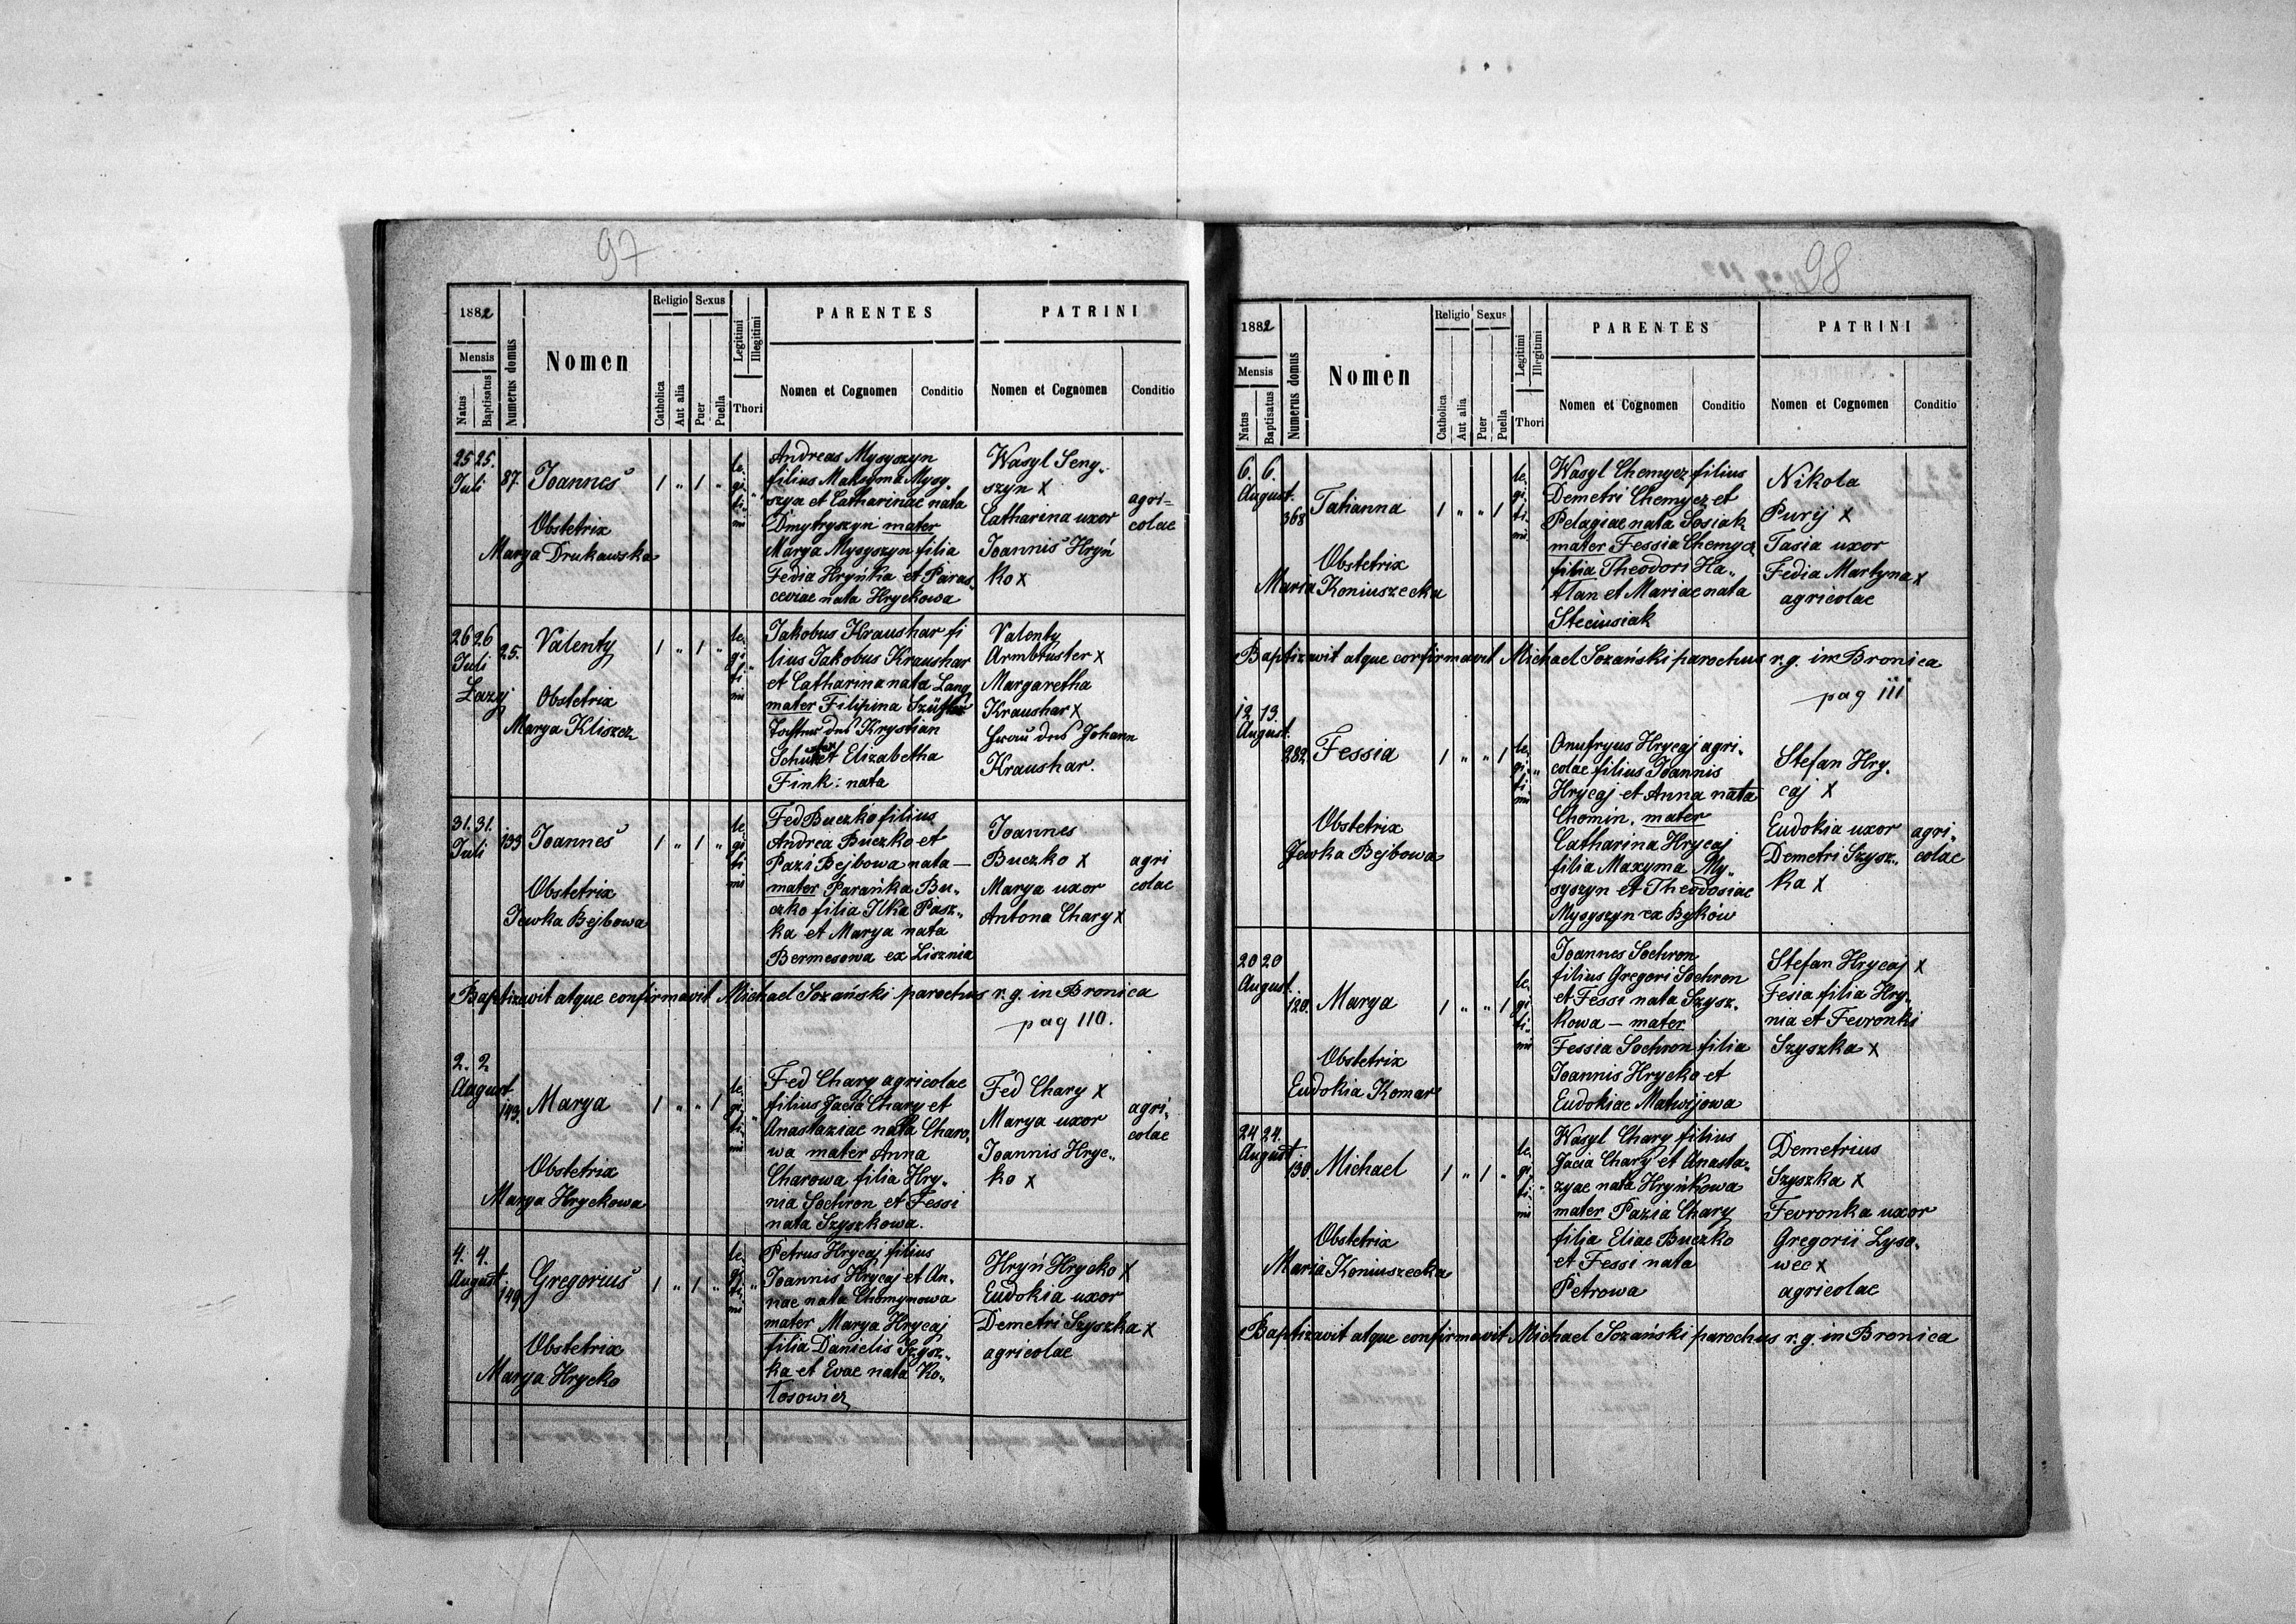 97
1882
Mensis
Natus
Baptisatus
Numerus domus
Nomen
Religio
Catholica
Aut alia
Sexus
Puer
Puella
Legitimi
Illegitimi
Thori
PARENTES
Nomen et Cognomen
Conditio
PATRINI
Nomen et Cognomen
Conditio
25 25.
Juli
87.
Joannes
Obstetrix
Marya Drukawska
1 " 1 "
le
gi
ti
mi
Andreas Mysyszyn
filius Maksyma Mysy-
szyn et Catharinae nata
Dmytryszyn mater
Marya Mysyszyn filia
Fedia Hryńka et Paras-
ceviae nata Hryckowa
Wasyl Seny-
szyn x
Catharina uxor
Joannis Hryń
ko x
agri=
colae
26 26
Juli
Lazy
25.
Valenty
Obstetrix
Marya Kliszcz
1 " 1 "
le
gi
ti
mi
Jakobus Kraushar fi
lius Jakobus Kraushar
et Catharina nata Lang
mater Filipina
des Krystian
et Elizabetha
Fink: nata
Valenty
Armbruster x
Margaretha
Kraushar x
Frau des Johann
Kraushar.
31. 31.
Juli
133
Joannes
Obstetrix
Jewka Bejbowa
1 " 1 "
le
gi
ti
mi
Fed Buczko filius
Andrea Buczko et
Pazi Bejbowa nata —
mater Parańka Bu-
czko filia Ilka Pasz-
ka et Marya nata
Bermesowa ex Lisznia
Joannes
Buczko x
Marya uxor
Antona Chary x
agri
colae
Baptizavit atque confirmavit Michael Sozański parochus r. g. in Bronica
pag 110.
2. 2
August
143.
Marya
Obstetrix
Marya Hryckowa
1 " " 1
le
gi
ti
mi
Fed Chary agricolae
filius Jacia Chary et
Anastaziae nata Charo-
wa mater Anna
Charowa filia Hry-
nia Sochron et Fessi
nata Szyszkowa.
Fed Chary x
Marya uxor
Joannis Hryc-
ko x
agri-
colae
4. 4.
August
149
Gregorius
Obstetrix
Marya Hrycko
1 " 1 "
le
gi
ti
mi
Petrus Hrycaj filius
Joannis Hrycaj et An-
nae nata Chomynowa
mater Marya Hrycaj
filia Danielis Szysz-
ka et Evae nata Ko-
łosowicz
Hryń Hrycko x
Eudokia uxor
Demetri Szyszka x
agricolae
98
1882
Mensis
Natus
Baptisatus
Numerus domus
Nomen
Religio
Catholica
Aut alia
Sexus
Puer
Puella
Legitimi
Illegitimi
Thori
PARENTES
Nomen et Cognomen
Conditio
PATRINI
Nomen et Cognomen
Conditio
6. 6.
August.
368
Tatianna
Obstetrix
Maria Koniuszecka
1 " " 1
le
gi
ti
mi
Wasyl Chemycz filius
Demetri Chemycz et
Pelagiae nata Sosiak
mater Fessia Chemycz
filia Theodori Ha-
tlan et Mariae nata
Steciusiak
Nikola
Purij x
Tasia uxor
Fedia Martyna x
agricolae
Baptizavit atque corfirmavit Michael Sozański parochus r. g. in Bronica
pag 111
12 13.
August.
282
Fessia
Obstetrix
Jewka Bejbowa
1 " " 1
le
gi
ti
mi
Onufryus Hrycaj agri-
colae filius Joannis
Hrycaj et Anna nata
Chomin. mater
Catharina Hrycaj
filia Maxyma My-
syszyn et Theodosiae
Mysyszyn ex Byków
Stefan Hry-
caj x
Eudokia uxor
Demetri Szysz-
ka x
agri-
colae
20 20
August
120.
Marya
Obstetrix
Eudokia Komar
1 " " 1
le
gi
ti
mi
Joannes Sochron
filius Gregori Sochron
et Fessi nata Szysz-
kowa — mater
Fessia Sochron filia
Joannis Hrycko et
Eudokiae Matwijowa
Stefan Hrycaj x
Fesia filia Hry-
nia et Fevronki
Szyszka x
24 24.
August
130.
Michael
Obstetrix
Maria Koniuszecka
1 " 1 "
le
gi
ti
mi
Wasyl Chary filius
Jacia Chary et Anasta-
zyae nata Hryńkowa
mater Pazia Chary
filia Eliae Buczko
et Fessi nata
Petrowa
Demetrius
Szyszka x
Fevronka uxor
Gregorii Lyso-
wec x
agricolae
Baptizavit atque confirmavit Michael Sozański parochus r. g. in Bronica